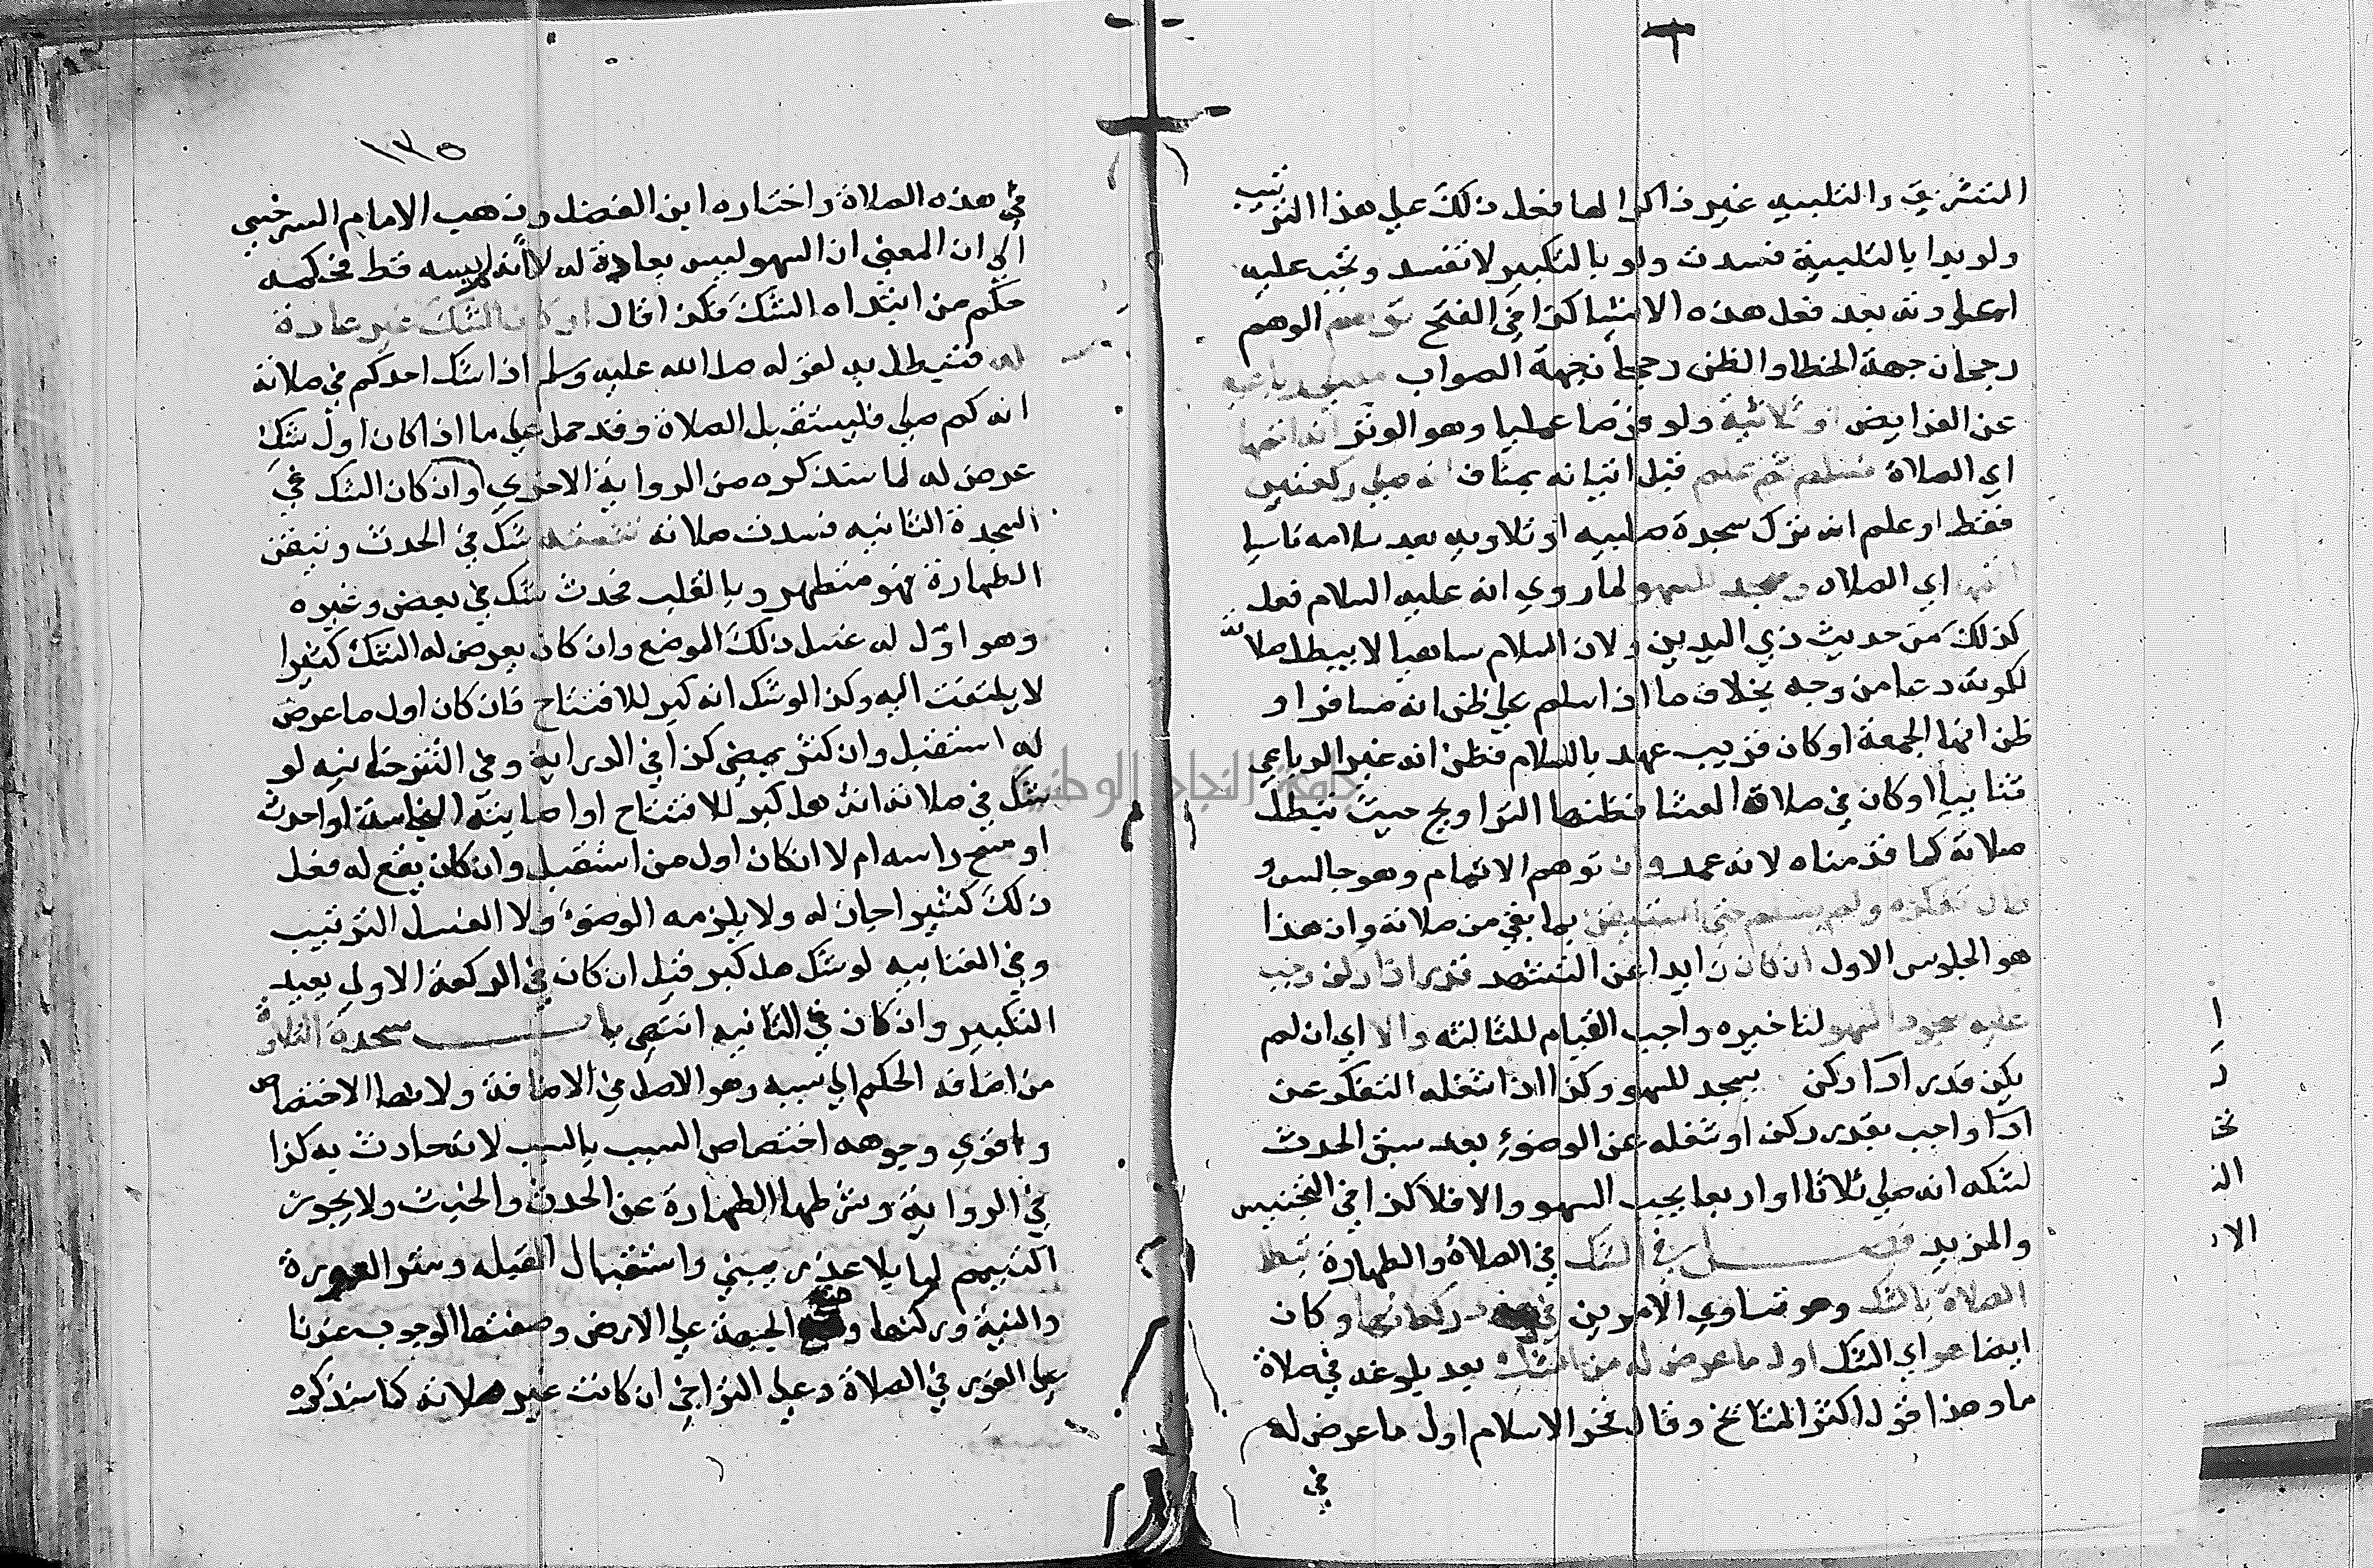 التشريق والتلبيه غير ذاكرا لها فعل ذلك علي هذا الترتيب
ولو بدا بالتلبية فسدت ولو بالتكبير لا تفسد ويجب عليه
اعادته بعد فعل هذه الاشيا كذا في الفتح توهم الوهم
رجحان جهة الخطا والظن رججان جهة الصواب مصلي رباعية
عن الفرايض او ثلاثية ولو فرضا عمليا وهو الوتر انه اتمها
اي الصلاة فسلم ثم علم قبل اتيانه بمناف انه صلي ركعتين
فقط او علم انه ترك سجدة صلبيه او تلاويه بعد سلامه ناسيا
اتمها اي الصلاه وسجد للسهو لما روي انه عليه السلام فعل
كذلك من حديث ذي اليدين ولان السلام ساهيا لا يبطل صلاته
لكونه دعا من وجه بخلاف ما اذا سلم علي ظن انه مسافر او
ظن انها الجمعة او كان قريب عهد بالسلام فظن انه غير الرباعي
ثنائيا او كان في صلاة العشا فظنها التراويح حيث تبطل
صلاته كما قدمناه لانه عمد وان توهم الاتمام وهو جالس و
طال تفكره ولم يسلم حتي استيقن بما بقي من صلاته وان هذا
هو الجلوس الاول ان كان زايدا عن التشهد قدر اداركن وجب
عليه سجود السهو لتاخيره واجب القيام للثالثه والا اي ان لم
يكن قدر ادا ركن يسجد للسهو وكذا اذا شغله التفكر عن
ادا واجب بقدر ركن او شغله عن الوضوء بعد سبق الحدث
لشكه انه صلي ثلاثا او اربعا يجب السهو والا فلا كذا في التجنيس
والمزيد فصل في الشك في الصلاة والطهارة تبطل
الصلاة بالشك وهو تساوي الامرين في عدد ركعاتها وكان
ايضا هو اي الشك اول ما عرض له من الشك بعد بلوغه في صلاة
ما وهذا قول اكثر المشائخ وقال فخر الاسلام اول ما عرض له
في
١٣٥
في هذه الصلاة واختاره ابن الفضل وذهب الامام السرخسي
الي ان المعني ان السهو ليس بعادة له لا انه لم يسه قط فحكمه
حكم من ابتداه الشك فكذا قال او كان الشك غير عادة
له فتبطل به لقوله صلا الله عليه وسلم اذا شك احدكم في صلاته
انه كم صلي فليستقبل الصلاة وقد حمل علي ما اذا كان اول شك
عرض له لما سنذكره من الرواية الاخري وان كان الشك في
السجدة الثانيه فسدت صلاته شك في الحدث وتيقن
الطهارة فهو متطهر وبالقلب محدث شك في بعض وضوءه
وهو اول له غسل ذلك الموضع وان كان يعرض له الشك كثيرا
لا يلتفت اليه وكذا لو شك انه كبر للافتتاح فان كان اول ما عرض
له استقبل وان كثر يمضي كذا في الدراية وفي التترخانيه لو
شك في صلاته انه هل كبر للافتتاح او اصابته النجاسة او احدث
او مسح راسه ام لا ان كان اول من استقبل وان كان يقع له فعل
ذلك كثيرا جاز له ولا يلزمه الوضوء ولا الغسل الترتيب
وفي العتابيه لو شك هل كبر قيل ان كان في الركعة الاولي يعيد
التكبير وان كان في الثانيه انتهي باب سجدة التلاوة
من اضافه الحكم الي سببه وهو الاصل في الاضافة ولانها الاختصاص
واقوي وجوهه اختصاص السبب بالسبب لانه حادث به كذا
في الرواية وشرطها الطهارة عن الحدث والخبث ولا يجوز
التيمم لها بلا عذر يبني واستقبال القبله وستر العورة
والنية وركنها وضع الجبهة علي الارض وصفتها الوجوب عندنا
علي الفور في الصلاة وعلي التراخي ان كانت غير صلاته كما سنذكره